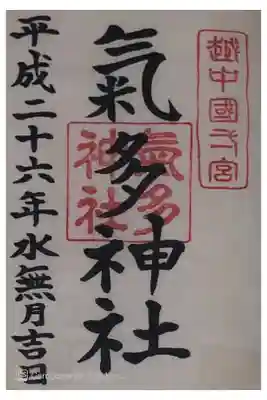 越中國弌宮
氣多神社
氣多
神社
平成二十六年水無月吉日